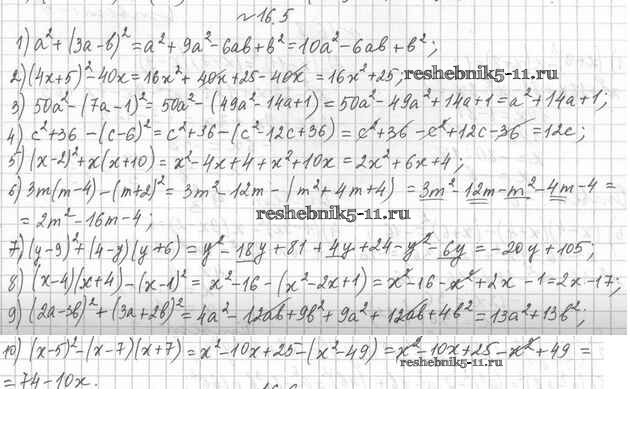 №16.5
1) a²+(3a-b)²=a²+9a²-6ab+b²=10a²-6ab+b²;
2) (4x+5)²-40x=16x²+40x+25-40x=16x²+25;
reshebnik5-11.ru
3) 50a²-(7a-1)²=50a²-(49a²-14a+1)=50a²-49a²+14a+1=a²+14a+1;
4) c²+36-(c-6)²=c²+36-(c²-12c+36)=c²+36-c²+12c-36=12c;
5) (x-2)²+x(x+10)=x²-4x+4+x²+10x=2x²+6x+4;
6) 3m(m-4)-(m+2)²=3m²-12m-(m²+4m+4)=3m²-12m-m²-4m-4=
=2m²-16m-4;
reshebnik5-11.ru
7) (y-9)²+(4-y)(y+6)=y²-18y+81+4y+24-y²-6y=-20y+105;
8) (x-4)(x+4)-(x-1)²=x²-16-(x²-2x+1)=x²-16-x²+2x-1=2x-17;
9) (2a-3b)²+(3a+2b)²=4a²-12ab+9b²+9a²+12ab+4b²=13a²+13b²;
10) (x-5)²-(x-7)(x+7)=x²-10x+25-(x²-49)=x²-10x+25-x²+49=
reshebnik5-11.ru
=74-10x.